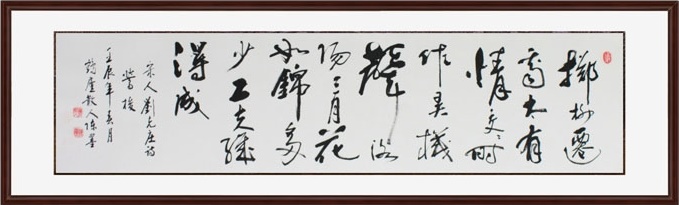 擲柳遷
喬太有
情交々時
作弄機
聲洛
陽三月花
如錦多
少工夫織
得成
宋人劉克莊詩
鶯梭
壬辰年春月
散人陳